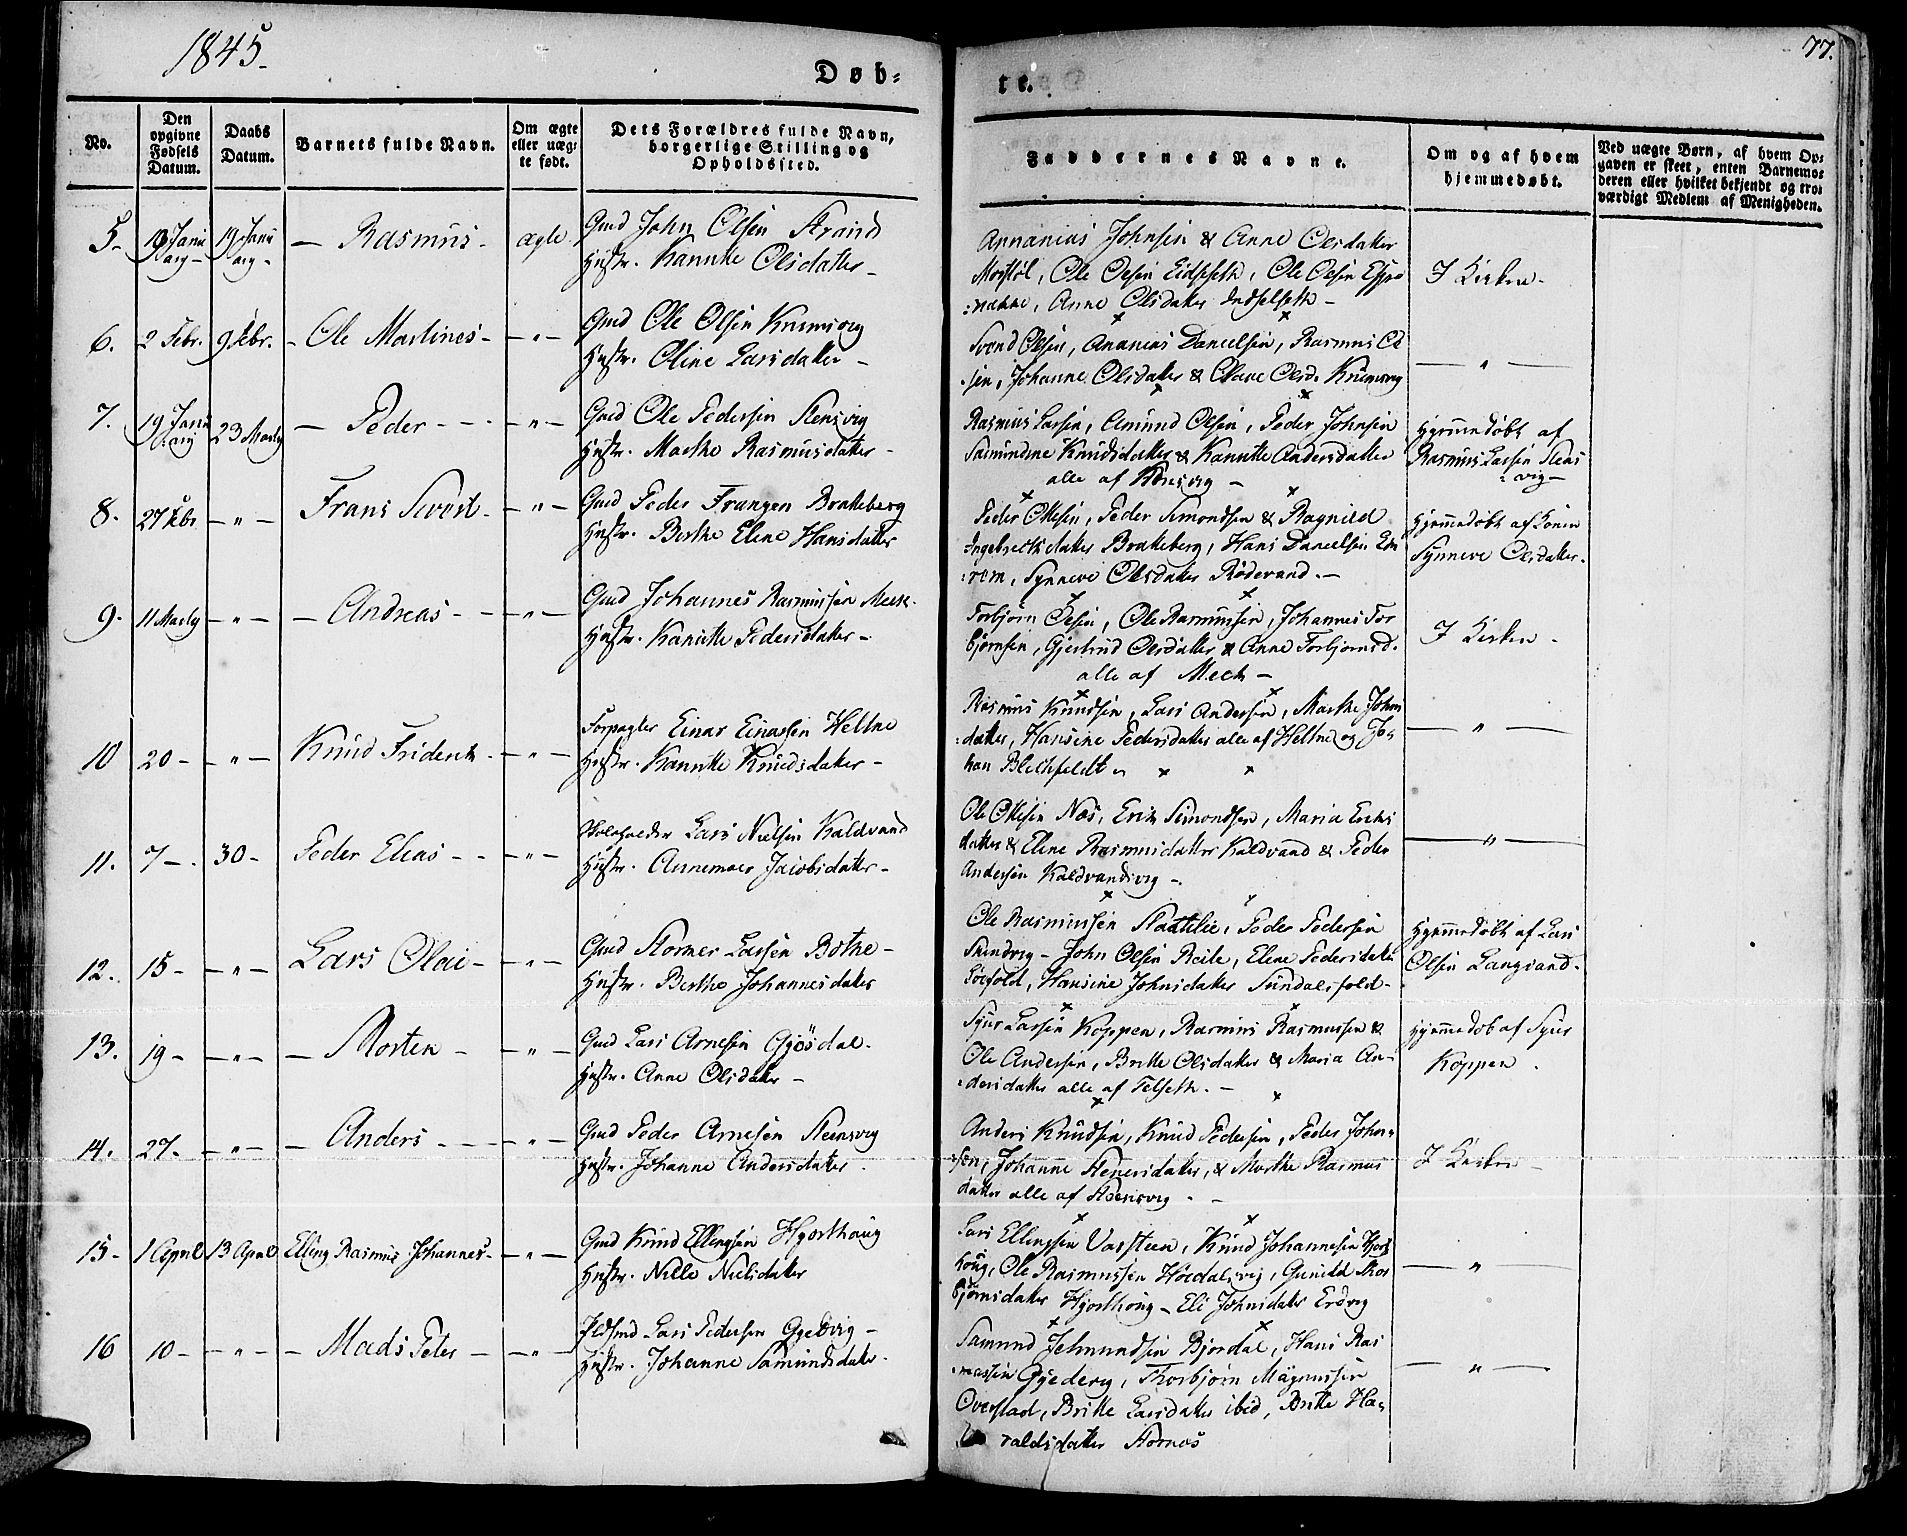 1845.
77.
Døb-
te.
No.
Den opgivne Fødsels Datum.
Daabs Datum.
Barnets fulde Navn.
Om ægte eller uæg-te født.
Dets Forældres fulde Navn, borgerlige Stilling og Opholdssted.
Faddernes Navne.
Om og af hvem hjemmedøbt.
Ved uægte Børn, af hvem Op-gaven er skeet, enten Barnemo-deren eller hvilket bekjendt og tro-værdigt Medlem af Menigheden.
5- 19 Janu 19 Janu - Rasmus - ægte Gmd John Olsen Strand
Hustr. Kannike Olsdatter -
Annanias Johnsen & Anne Olsdatter
Ole Olsen Eidseth, Ole Olsen Espe
Anne Olsdatter Indselseth -
I Kirken -
6. 2 Febr. 9 Febr. - Ole Martines - - " - Gmd Ole Olsen Krumsvig
Hustr. Oline Larsdatter -
Svend Olsen, Ananias Danielsen, Rasmus Ol
-sen, Johanne Olsdatter & Olave Olsd. Krumsvig
- " -
7. 19 Janu 23 Marty - Peder - - - - " - Gmd Ole Pedersen Stensvig
Hustr. Marthe Rasmusdatter -
Rasmus Larsen, Amund Olsen, Peder Johnsen
Samundine Knudsdatter & Kannike Andersdatter
alle af Stensvig -
Hjemmedøbt af
Rasmus Larsen Stens
-vig -
8. 27 Febr - " - Frans Sivert - - " - Gmd Peder Franzen Brakeberg
Hustr. Berthe Eline Hansdatter
Peder Ottesen, Peder Simondsen & Ragnild
Ingebrectsdatter Brakeberg, Hans Danielsen
Synneve Olsdatter Rødevand. -
Hjemmedøbt af Konen
Synneve Olsdatter.
9. 11 Marty - " - - Andreas - - - " - Gmd Johannes Rasmussen Mech.
Hustr. Kannike Pedersdatter -
Torbjørn Olsen, Ole Rasmussen, Johannes Tor
bjørnsen, Gjertrud Olsdatter & Anne Torbjornsd.
alle af Mech -
I Kirken -
10 20 - - " - Knud Friderich - - " - Forpagter Einar Einarsen Heltne
Hustr. Kannike Knudsdatter -
Rasmus Knudsen, Lars Andersen, Marthe Johns
-datter, Hansine Pedersdatter alle af Heltne og Jo-
han Blechfeldt
- " -
11. 7 - 30 - Peder Elias - - - " - Lars Nielsen Kaldvand
Hustr. Annemar Jacobsdatter -
Ole Ottesen Næs, Erik Simondsen, Maria Eriks
datter & Eline Rasmusdatter Kaldvand & Peder
Andersen Kaldvandsvig -
- " -
12. 15 - - " - Lars Olai - - " - Gmd Stormer Larsen Bothe -
Hustr. Berthe Johannesdatter
Ole Rasmussen Slattelie, Peder Pedersen
John Olsen Reite, Eline Pedersdatter
Hansine Johnsdatter Sundalsfold -
Hjemmedøbt af Lars
Olsen Langsand.
13. 19 - - " - - Morten - - " - Gmd Lars Arnesen Gjøsdal.
Hustr. Anne Olsdatter -
Sjur Larsen Koppen, Rasmus Rasmussen &
Ole Andersen, Britte Olsdatter & Maria An-
-dersdatter alle af Felseth. -
Hjemmedøb af Sjur
Koppen.
14. 27. - " - - Anders - - - - " - Gmd Peder Arnesen Steensvig
Hustr. Johanne Andersdatter.
Anders Knudsen, Knud Pedersen, Peder John-
-sen, Johanne Stenersdatter, & Marthe Rasmus
datter alle af Steensvig. -
I Kirken -
15 - 1 April 13 April Elling Rasmus Johannes - - " - Gmd Knud Ellingsen Hjorthaug
Hustr. Nille Nielsdatter
Lars Ellingsen Varsteen, Knud Johannesen Hjort
houg, Ole Rasmussen Hoedalsvig, Gunild Thor
bjørnsdatter Hjorthoug - Eli Johnsdatter Erdvig
- " -
16 10 - - " - - Mads Peter - - " - Lars Pedersen Gjedvig -
Hustr. Johanne Samundsdatter.
Samund Jehmundsen Bjordal, Hans Ras
-mussen Gjedevg, Thorbjørn Magnussen
Overstad, Britte Larsdatter ibid, Britte Ha-
raldsdatter Stornes
- " -